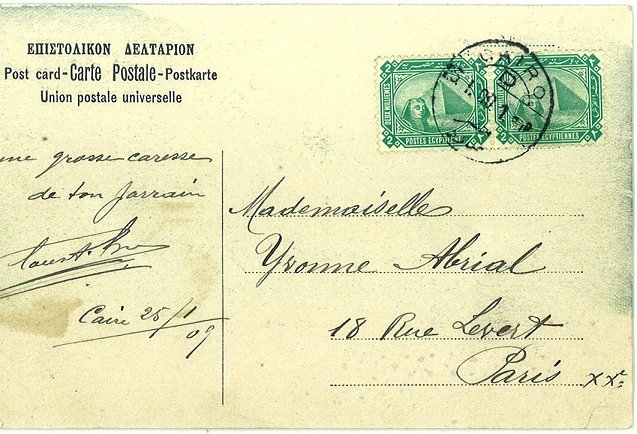 ΕΠΙΣΤΟΛΙΚΟΝ ΔΕΛΤΑΡΙΟΝ
Post card-Carte Postale-Postkarte
Union postale universelle
une grosse caresse
de ton parrain
Caire 25/1
09
2 DEUX MILLIEMES
2 POSTES EGYPTIENNES
2 POSTES EGYPTIENNES
CAIRO
D
Mademoiselle
Yvonne Abrial
18 Rue Levert
Paris XXe